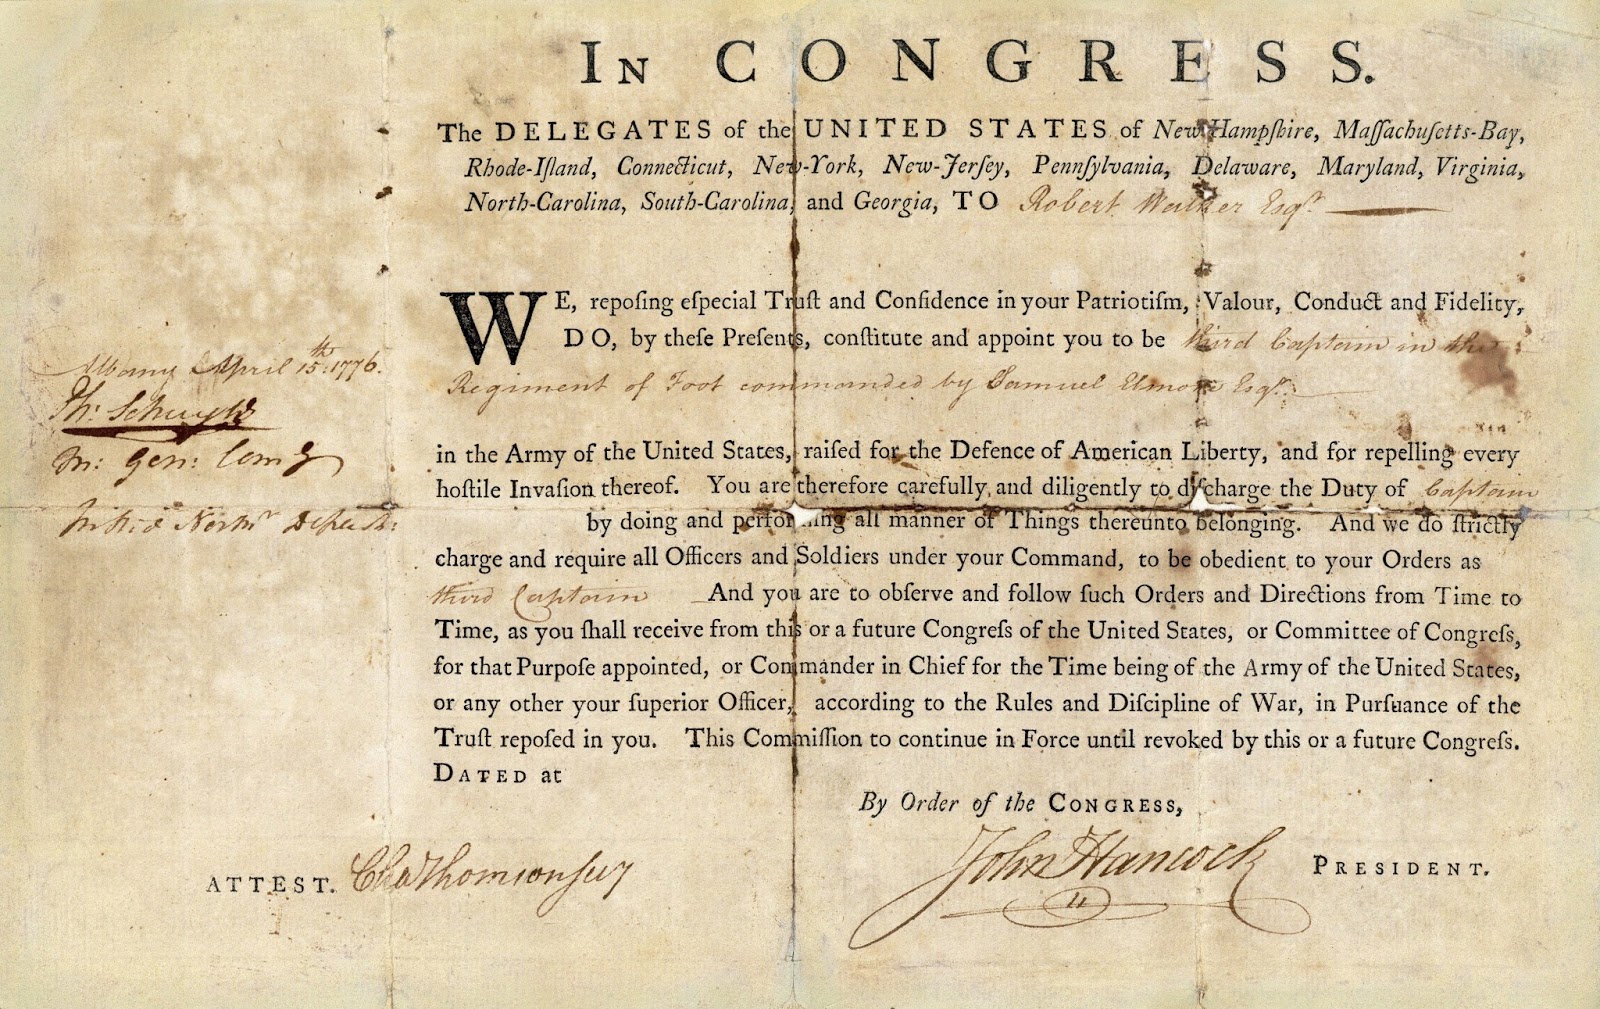 IN CONGRESS.
The DELEGATES of the UNITED STATES of New-Hampſhire, Maſſachuſetts-Bay,
Rhode-Iſland, Connecticut, New-York, New-Jerſey, Pennſylvania, Delaware, Maryland, Virginia,
North-Carolina, South-Carolina, and Georgia, TO Robert Walker Esqr.
WE, repoſing eſpecial Truſt and Confidence in your Patriotiſm, Valour, Conduct and Fidelity,
DO, by theſe Preſents, conſtitute and appoint you to be third Captain in the
Regiment of Foot commanded by Samuel Elmore Esqr.
in the Army of the United States, raiſed for the Defence of American Liberty, and for repelling every
hoſtile Invaſion thereof. You are therefore carefully and diligently to diſcharge the Duty of Captain
by doing and performing all manner of Things thereunto belonging. And we do ſtrictly
charge and require all Officers and Soldiers under your Command, to be obedient to your Orders as
third Captain And you are to obſerve and follow ſuch Orders and Directions from Time to
Time, as you ſhall receive from this or a future Congreſs of the United States, or Committee of Congreſs,
for that Purpoſe appointed, or Commander in Chief for the Time being of the Army of the United States,
or any other your ſuperior Officer, according to the Rules and Diſcipline of War, in Purſuance of the
Truſt repoſed in you. This Commiſſion to continue in Force until revoked by this or a future Congreſs.
DATED at
By Order of the CONGRESS,
John Hancock PRESIDENT.
ATTEST. Cha Thomson secy
Albany April 15th. 1776.
Ph: Schuyler
M: Gen: